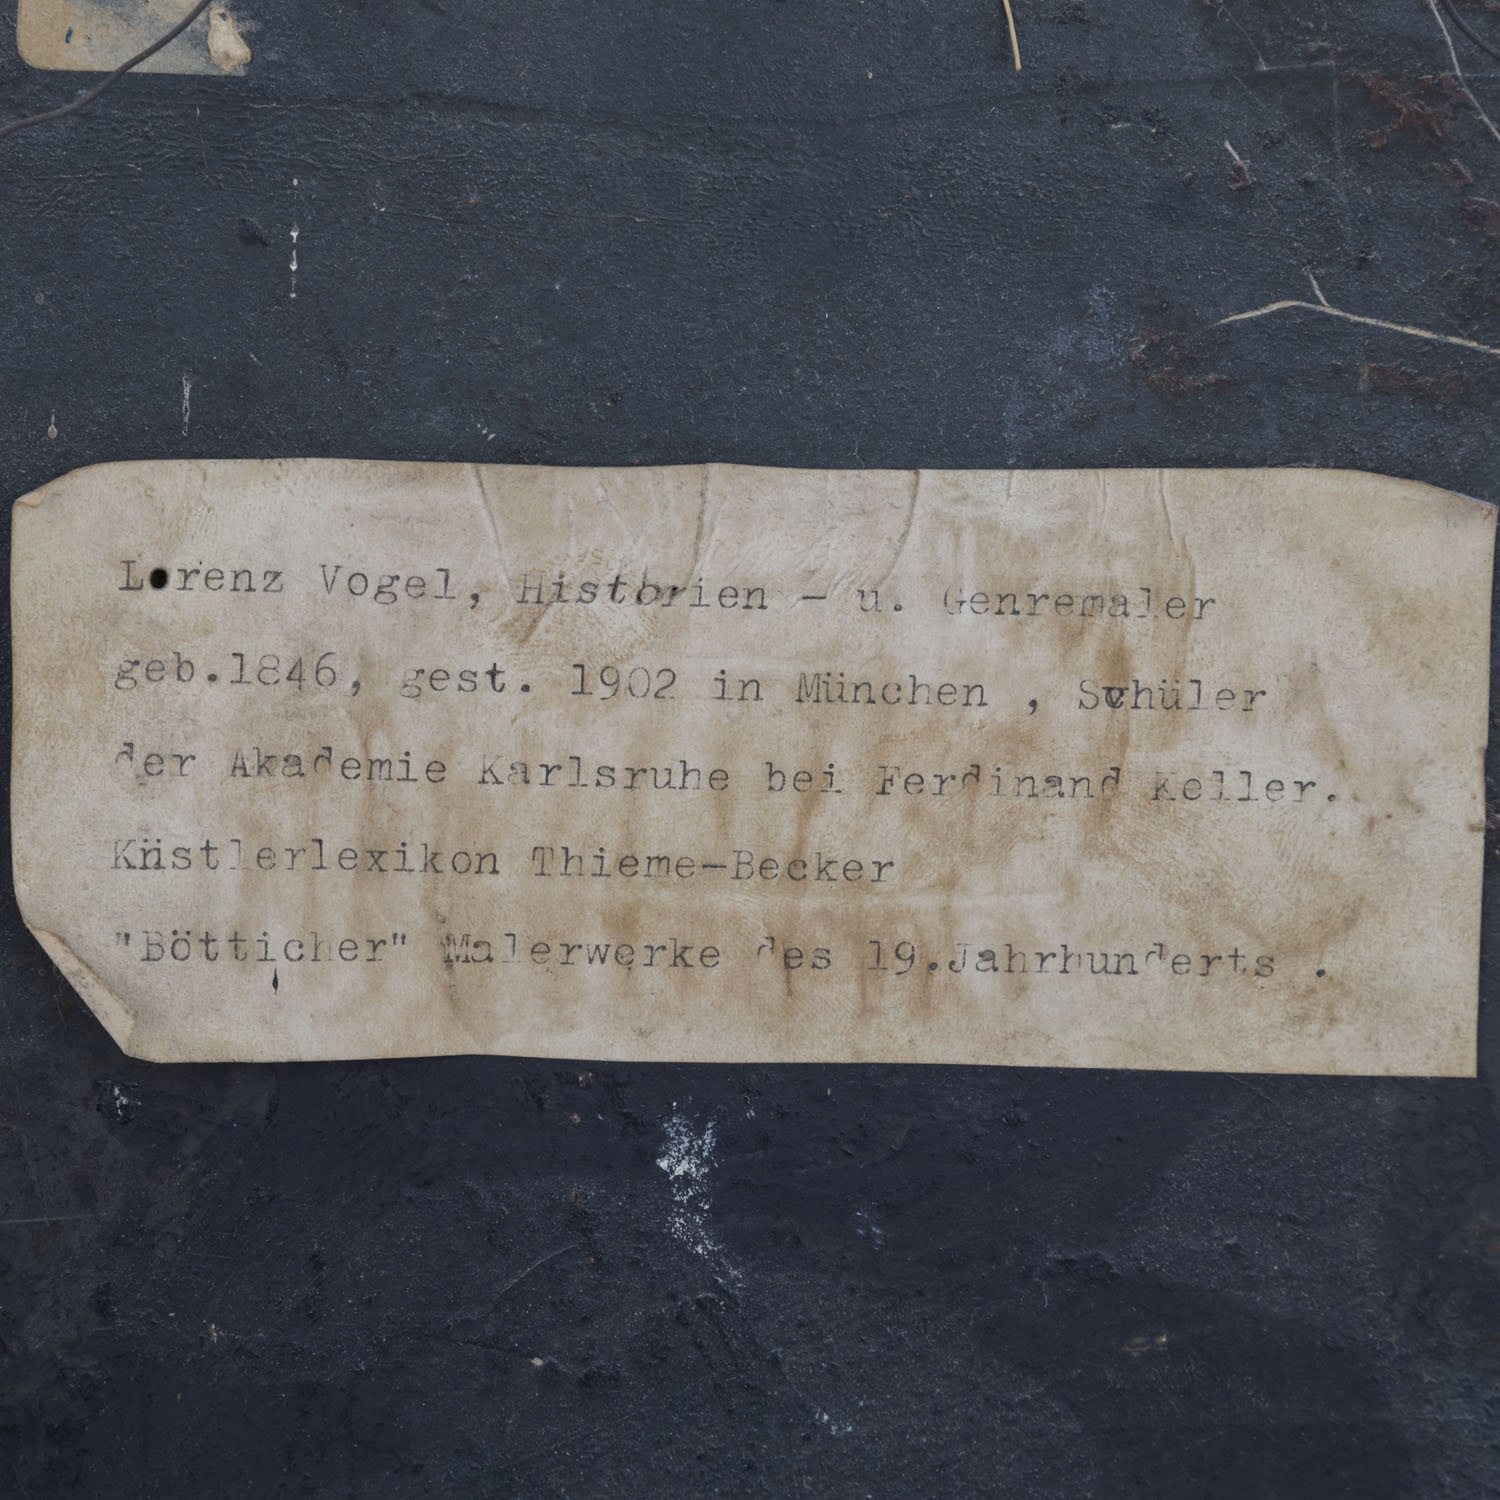 Lorenz Vogel, Historien - u. Genremaler
geb.1846, gest. 1902 in München , Schüler
der Akademie Karlsruhe bei Ferdinand Keller.
Küstlerlexikon Thieme-Becker
"Bötticher" Malerwerke des 19.Jahrhunderts .